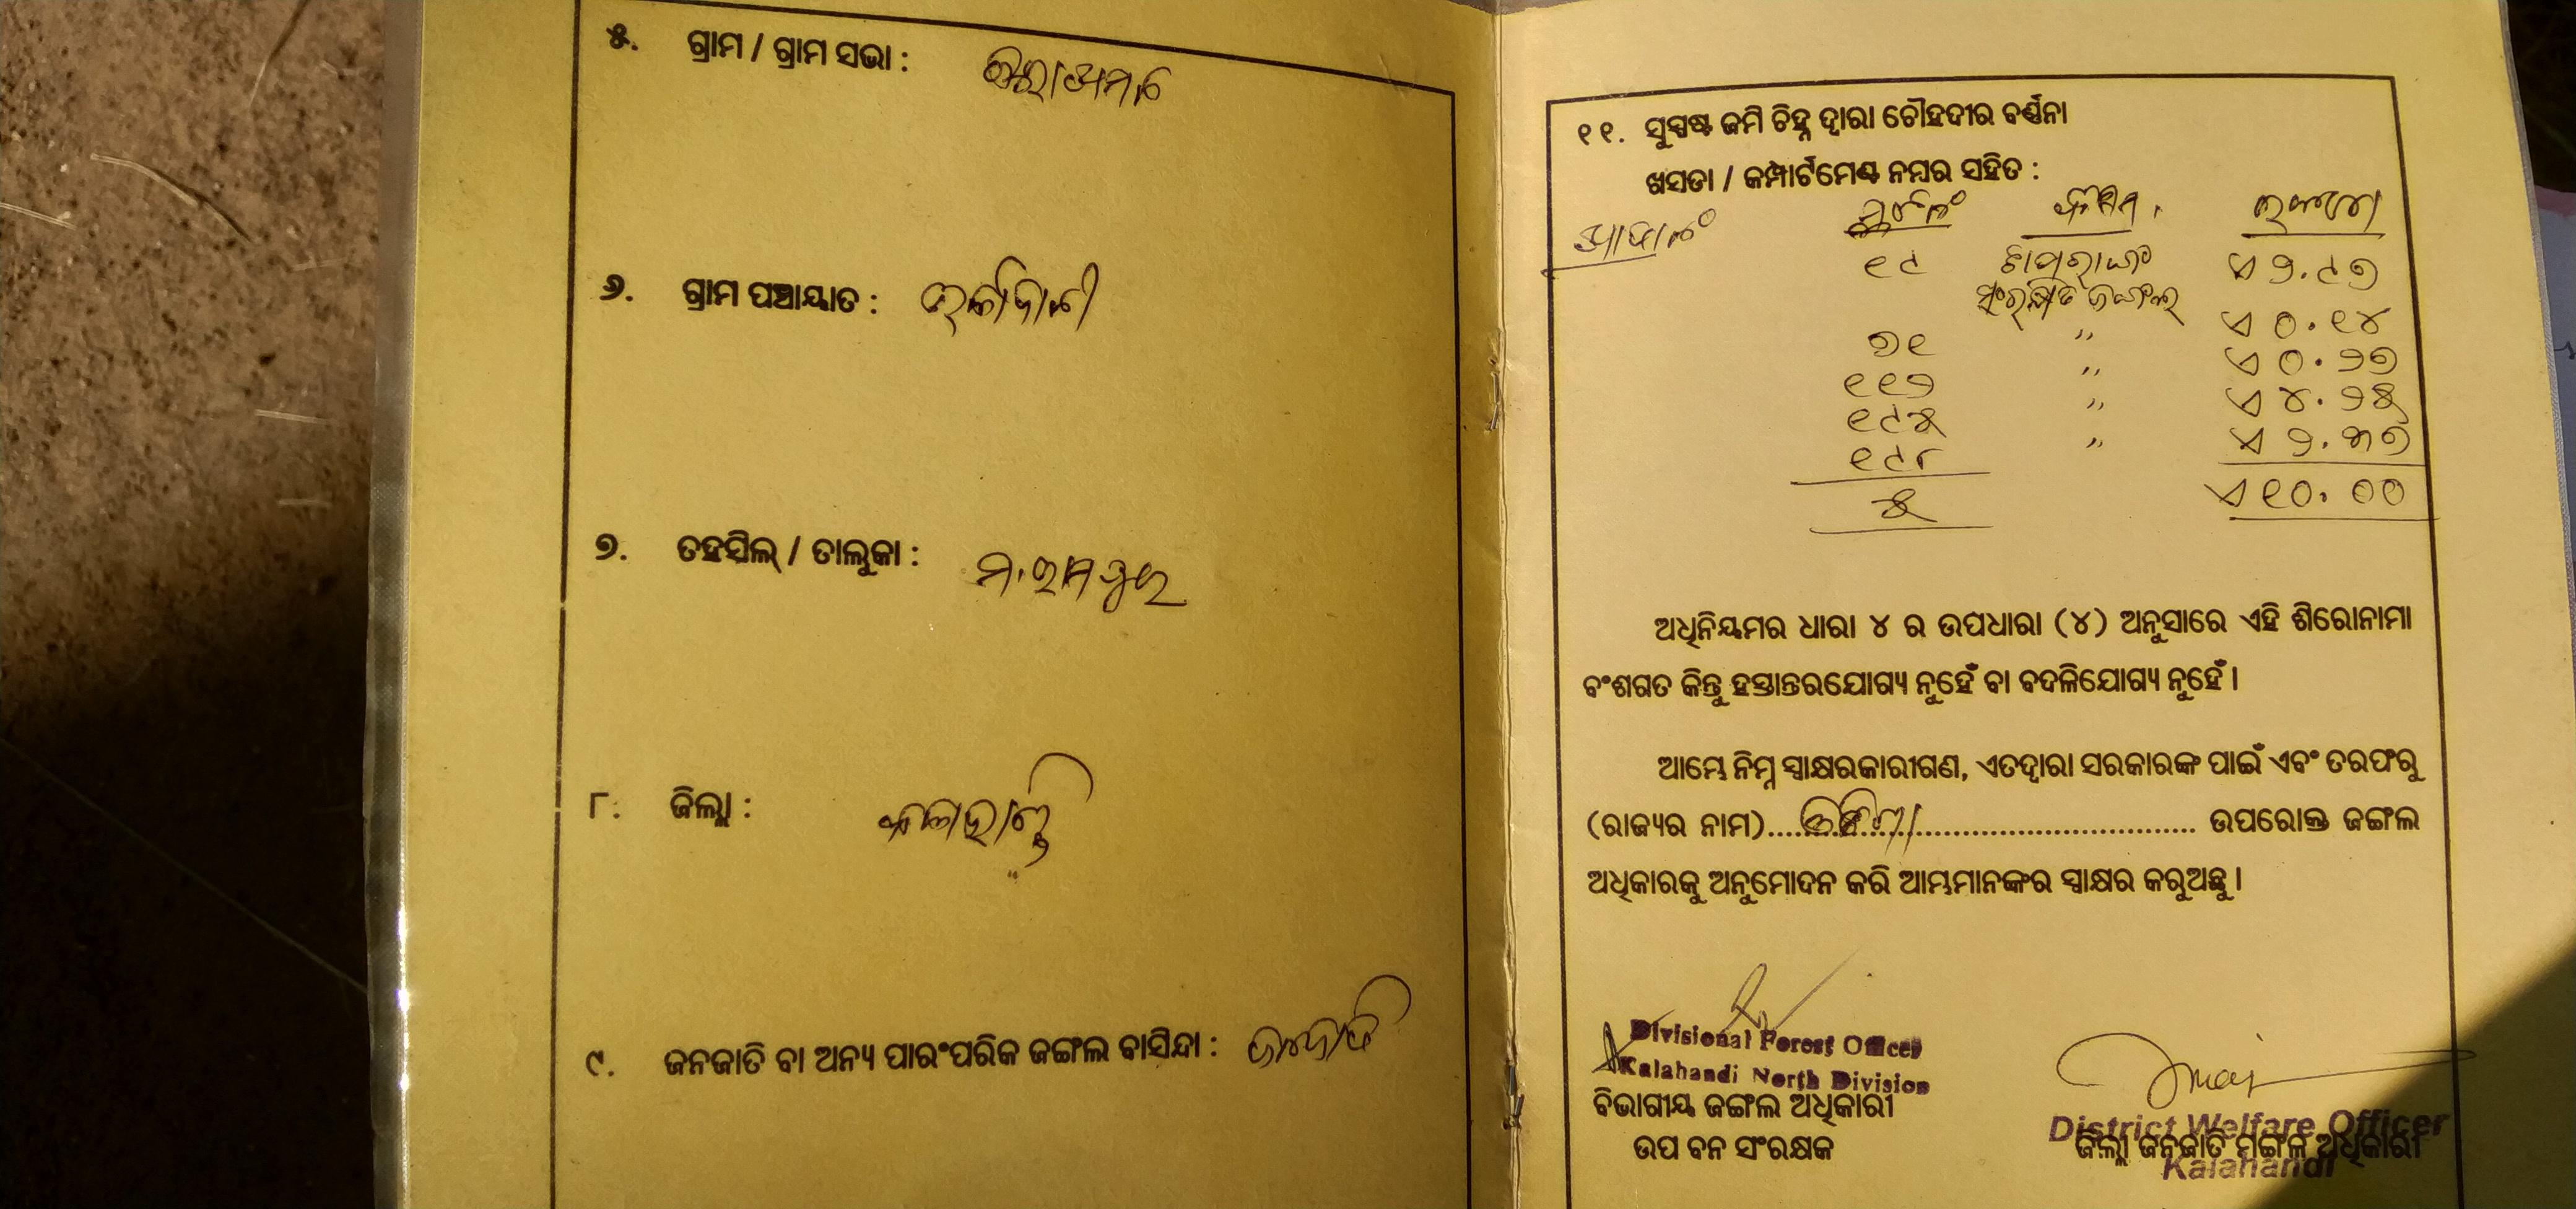 ୫. ଗ୍ରାମ / ଗ୍ରାମ ସଭା :
୬. ଗ୍ରାମ ପଞ୍ଚାୟାତ :
୭. ତହସିଲ୍ / ତାଲୁକା : ମ.ରାମପୁର
୮. ଜିଲ୍ଲା : କଳାହାଣ୍ଡି
୯. ଜନଜାତି ବା ଅନ୍ୟ ପାରଂପରିକ ଜଙ୍ଗଲ ବାସିନ୍ଦା :
୧୧. ସୁସ୍ପଷ୍ଟ ଜମି ଚିହ୍ନ ଦ୍ୱାରା ଚୌହଦୀର ବର୍ଣ୍ଣନା
ଖସଡା / କମ୍ପାର୍ଟମେଣ୍ଟ ନମ୍ବର ସହିତ :
ପ୍ଲଟନଂ କିସମ
୧୯ ଏ ୨.୯୭
ସଂରକ୍ଷିତ ଜଙ୍ଗଲ
୭୧ " ଏ ୦.୧୪
୧୧୨ " ଏ ୦.୨୭
୧୯୫ " ଏ ୪.୨୫
୧୯୮ " ଏ ୨.୩୭
୫ ଏ ୧୦.୦୦
ଅଧିନିୟମର ଧାରା ୪ ର ଉପଧାରା (୪) ଅନୁସାରେ ଏହି ଶିରୋନାମା
ବଂଶଗତ କିନ୍ତୁ ହସ୍ତାନ୍ତରଯୋଗ୍ୟ ନୁହେଁ ବା ବଦଳିଯୋଗ୍ୟ ନୁହେଁ।
ଆମ୍ଭେ ନିମ୍ନ ସ୍ୱାକ୍ଷରକାରୀଗଣ, ଏତଦ୍ୱାରା ସରକାରଙ୍କ ପାଇଁ ଏବଂ ତରଫରୁ
(ରାଜ୍ୟର ନାମ)........ଓଡ଼ିଶା........ ଉପରୋକ୍ତ ଜଙ୍ଗଲ
ଅଧିକାରକୁ ଅନୁମୋଦନ କରି ଆମ୍ଭମାନଙ୍କର ସ୍ୱାକ୍ଷର କରୁଅଛୁ।
Divisional Forest Officer
Kalahandi North Division
ବିଭାଗୀୟ ଜଙ୍ଗଲ ଅଧିକାରୀ
ଉପ ବନ ସଂରକ୍ଷକ
District Welfare Officer
ଜିଲ୍ଲା ଜନଜାତି ମଙ୍ଗଳ ଅଧିକାରୀ
Kalahandi